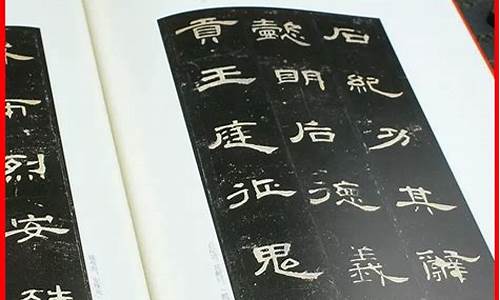 石紀功其辭
懿明后德義
貢王庭征鬼
布烈安殊